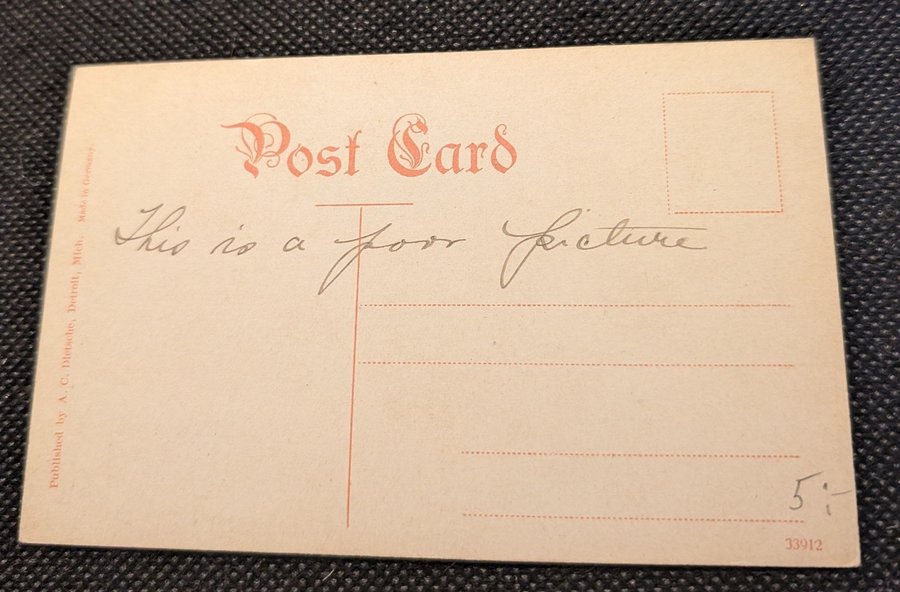 Post Card
This is a poor picture
Published by A. C. Dietsche, Detroit, Mich. Made in Germany.
5:-
33912